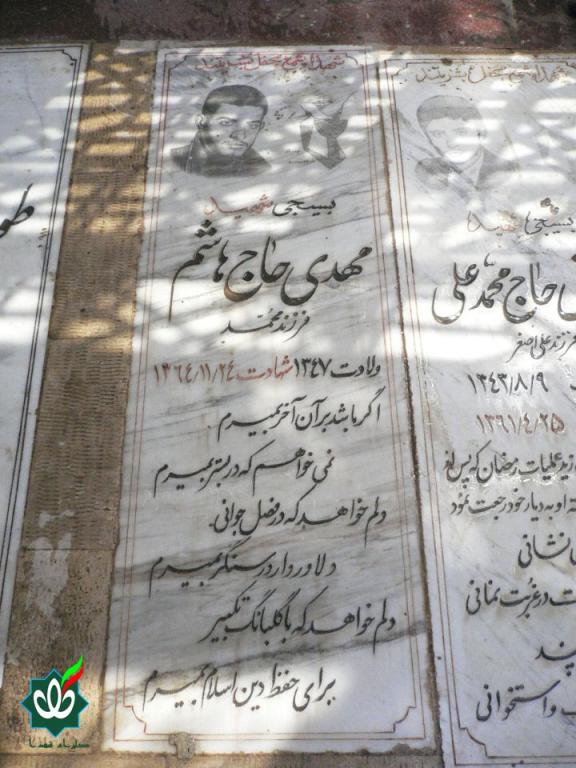 شهدا شمع محفل بشریتند
بسیجی شهید
مهدی حاج هاشم
فرزند محمد
ولادت ۱۳۴۷ شهادت ۱۳۶۴/۱۱/۲۴
اگر باشد بر آن آخر بمیرم
نمی خواهم که در بستر بمیرم
دلم خواهد که در فصل جوانی
دلاور وار در سنگر بمیرم
دلم خواهد که با گلبانگ تکبیر
برای حفظ دین اسلام بمیرم
شهدا شمع محفل بشریتند
بسیجی شهید
حاج محمد علی
فرزند علی اصغر
۱۳۴۳/۸/۹
۱۳۶۱/۴/۲۵
عملیات رمضان که پس
او به دیار خود رجعت نمود
نشانی
در غربت نمانی
چند
و استخوانی